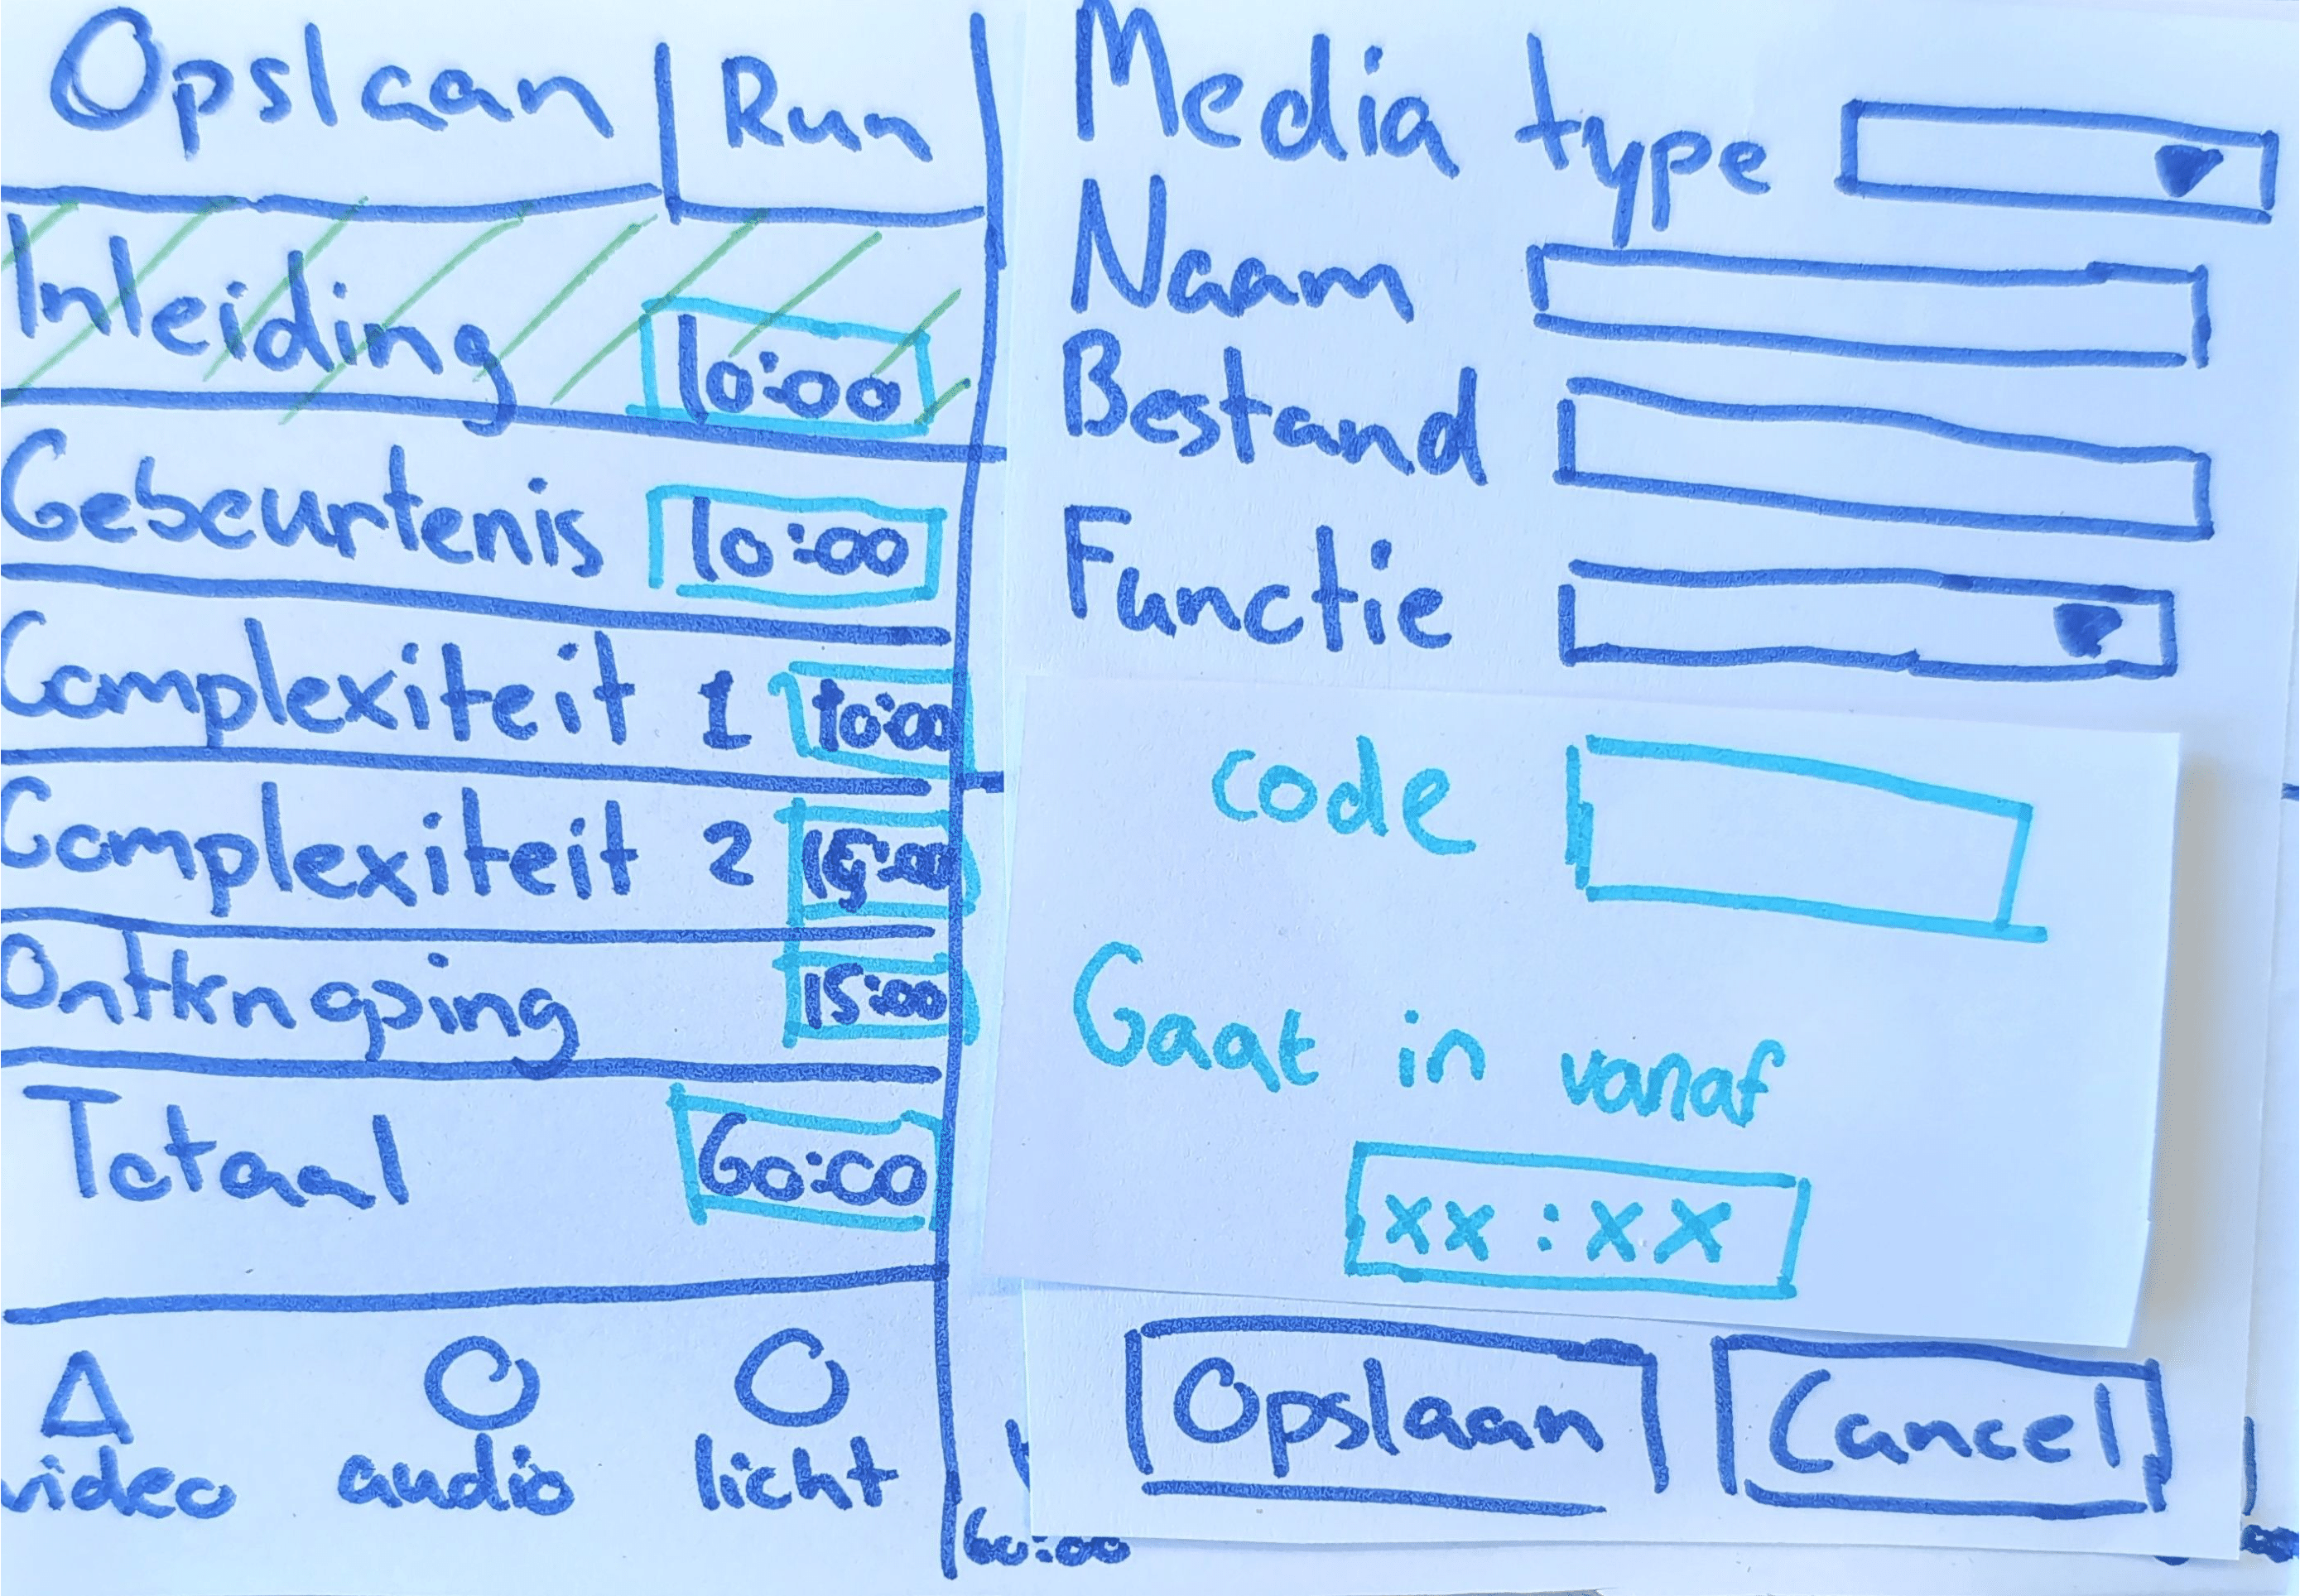 Opslaan Run
Inleiding 10:00
Gebeurtenis 10:00
Complexiteit 1 10:00
Complexiteit 2 15:00
Ontknoping 15:00
Totaal 60:00
video audio licht
60:00
Media type
Naam
Bestand
Functie
code
Gaat in vanaf
xx:xx
Opslaan Cancel